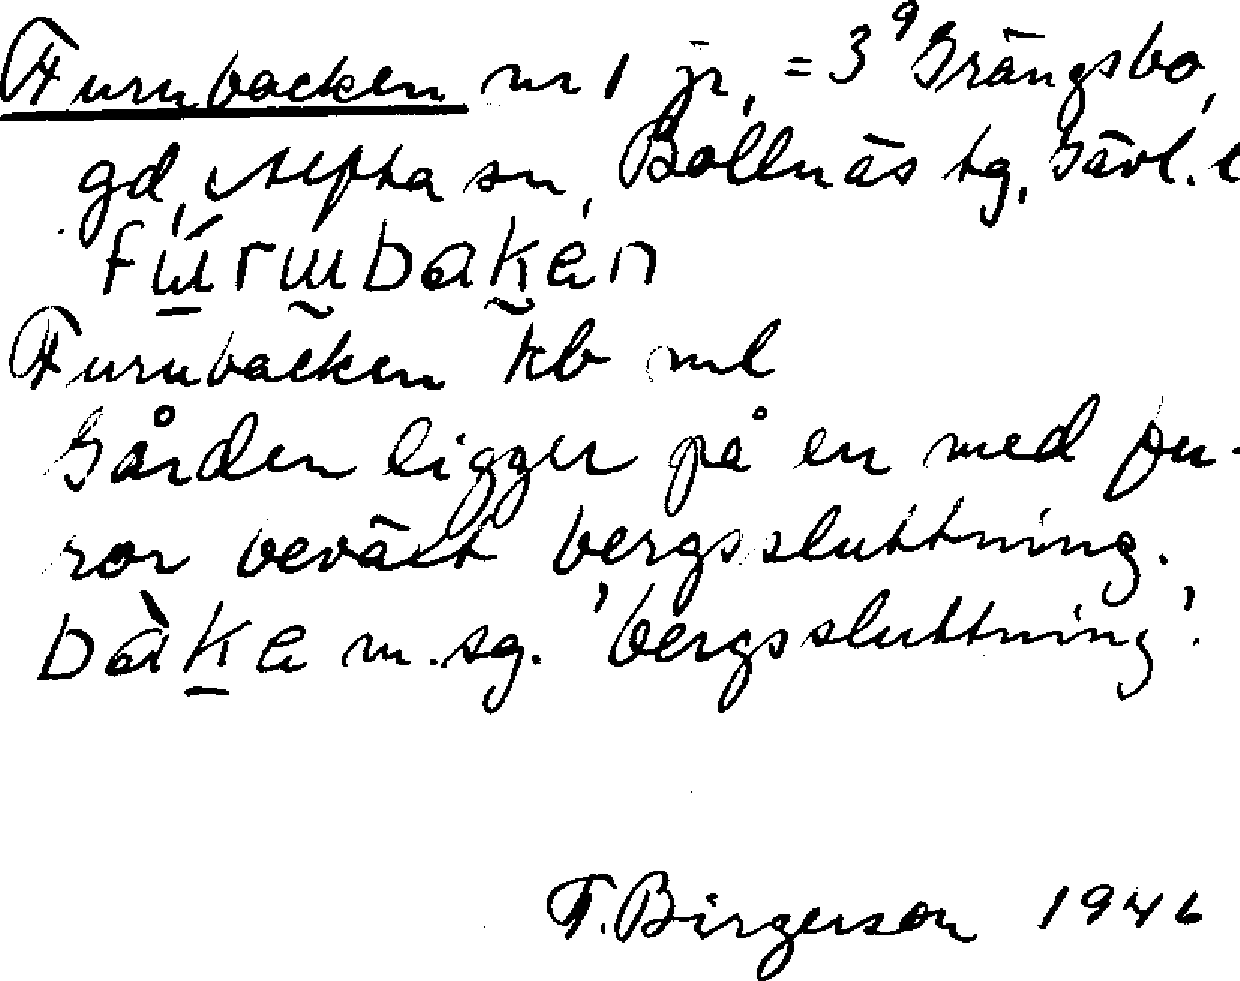 Furubacken nr 1 jr, = 3⁹ Grängsbo,
gd, Alfta sn, Bollnäs tg, Gävl. l
Furubacken kb ml
Gården ligger på en med fu-
ror beväxt bergssluttning.
bàke m. sg. 'bergssluttning'.
F. Birgerson 1946